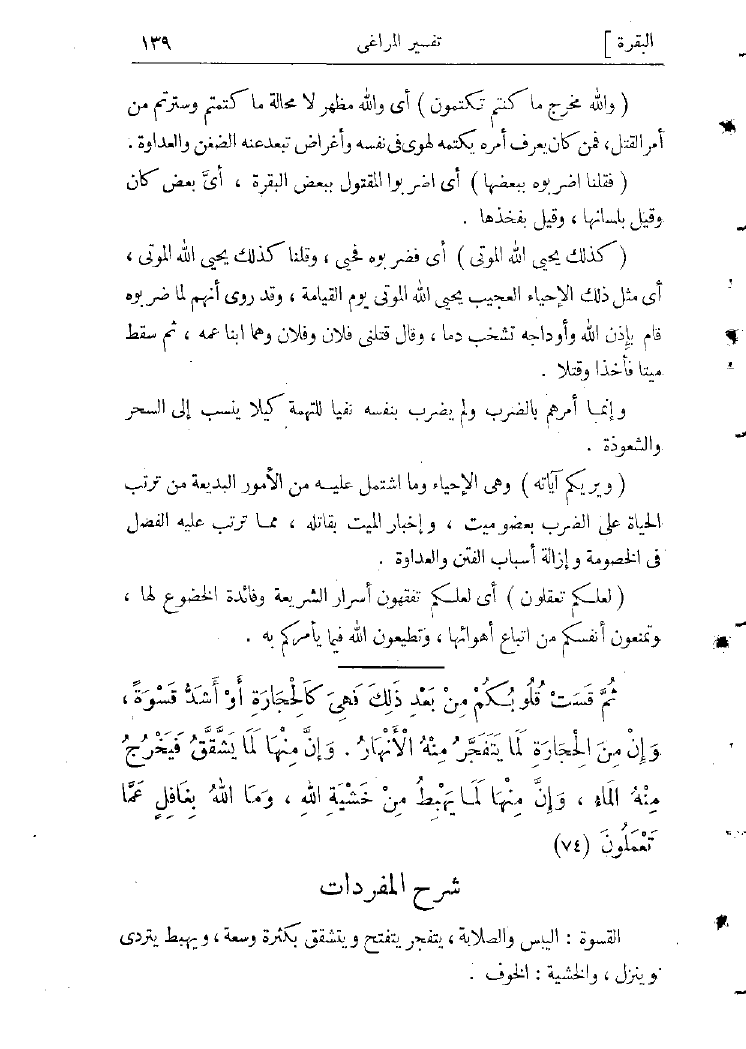 البقرة ] تفسير المراغى ١٣٩
( والله مخرج ما كنتم تكتمون ) أى والله مظهر لا محالة ما كتمتم وسترتم من
أمر القتل، فمن كان يعرف أمره يكتمه لهوى فى نفسه وأغراض تبعد عنه الضغن والعداوة .
( فقلنا اضربوه ببعضها ) أى اضربوا المقتول ببعض البقرة ، أىَّ بعض كان
وقيل بلسانها ، وقيل بفخذها .
( كذلك يحيى الله الموتى ) أى فضربوه فحيى ، وقلنا كذلك يحيى الله الموتى ،
أى مثل ذلك الإحياء العجيب يحيى الله الموتى يوم القيامة ، وقد روى أنهم لما ضربوه
قام بإذن الله وأوداجه تشخب دما ، وقال قتلنى فلان وفلان وهما ابنا عمه ، ثم سقط
ميتا فأخذا وقتلا .
وإنما أمرهم بالضرب ولم يضرب بنفسه نفيا للتهمة كيلا ينسب إلى السحر
والشعوذة .
( ويريكم آياته ) وهى الإحياء وما اشتمل عليه من الأمور البديعة من ترتب
الحياة على الضرب بعضو ميت ، وإخبار الميت بقاتله ، مما ترتب عليه الفصل
فى الخصومة وإزالة أسباب الفتن والعداوة .
( لعلكم تعقلون ) أى لعلكم تفقهون أسرار الشريعة وفائدة الخضوع لها ،
وتمنعون أنفسكم من اتباع أهوائها ، وتطيعون الله فيما يأمركم به .
ثُمَّ قَسَتْ قُلُوبُكُمْ مِنْ بَعْدِ ذَلِكَ فَهِىَ كَالْحِجَارَةِ أَوْ أَشَدُّ قَسْوَةً ،
وَإِنَّ مِنَ الْحِجَارَةِ لَمَا يَتَفَجَّرُ مِنْهُ الْأَنْهَارُ . وَإِنَّ مِنْهَا لَمَا يَشَّقَّقُ فَيَخْرُجُ
مِنْهُ الْمَاءِ ، وَإِنَّ مِنْهَا لَمَا يَهْبِطُ مِنْ خَشْيَةِ اللهِ ، وَمَا اللهُ بِغَافِلٍ عَمَّا
تَعْمَلُونَ (٧٤)
شرح المفردات
القسوة : اليبس والصلابة ، يتفجر يتفتح ويتشقق بكثرة وسعة ، ويهبط يتردى
وينزل ، والخشية : الخوف .